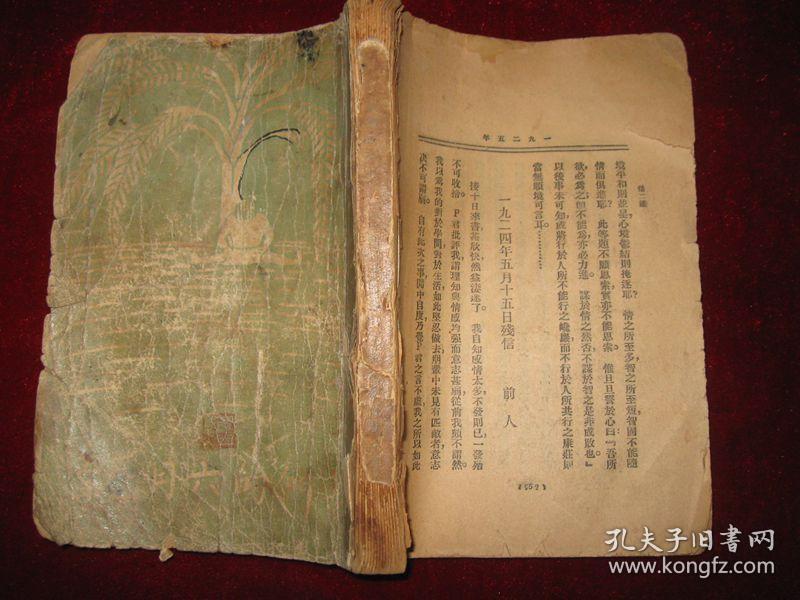 一九二五年
境平和則並是心境鬱結則掩逐耶？ 情之所至多，智之所至短，智固不能隨
情而俱進耶？ 此等題不願思索，實亦不能思索。 惟旦旦誓於心曰：『吾所
欲必爲之，卽不能爲，亦必力進。 謀於情之然否，不謀於智之是非成敗也。』
以後事未可知，或將行於人所不能行之巉巖，而不行於人所共行之康莊，卽
當無順境可言耳…………
一九二四年五月十五日殘信 前人
接十日來書，甚欣快，然益淒迷了。 我自知成情太多，不發則已，一發殆
不可收拾。 P君批評我，謂理知與情感均强，而意志甚弱，從前我頗不謂然。
我以爲我的對於學問，對於生活，如此堅忍做去，朋輩中未見有匹敵者，意志
決不可謂弱。 自有此次之事，閒中自度，乃覺P君之言不虛，我之所以如此
孔夫子旧书网
www.kongfz.com